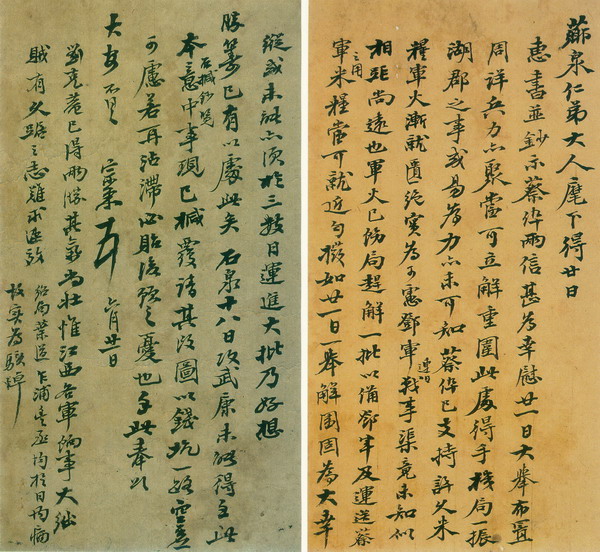 芗泉仁弟大人麾下得廿日
惠書並鈔示蔡倅兩信甚為幸慰廿一日大舉布置
周詳兵力亦聚當可立解重圍此處得手機局一振
湖郡之事或易為力亦未可知蔡倅已支持許久米
糧軍火漸就匱絕實為可憲鄧軍連日戰事渠竟未知似
相距尚遠也軍火已飭局趕解一批以備鄧軍及運送蔡
軍之用米糧當可就近勻撥如廿一日一舉解圍固為大幸
縱或未能亦須於三數日運進大批乃好想
勝籌已有以處此矣石泉十八日攻武康未能得手此
本意中事現已椷覆請其改圖以錢坑一路空虛
可慮若再沾滯必貽後顧之憂也手此奉
大安不具 宗棠 六月廿一日
劉克菴已得兩勝其氣尚壯惟江西各軍餉事大絀
賊有久踞之志難求速